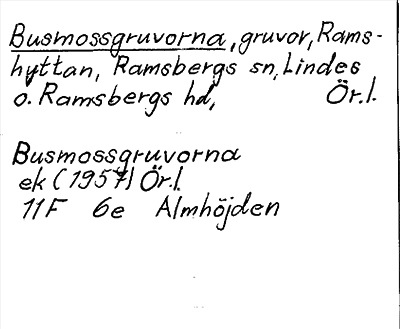 Busmossgruvorna, gruvor, Rams-
hyttan, Ramsbergs sn, Lindes
o. Ramsbergs hd, Ör.l.
Busmossgruvorna
ek (1957) Ör.l.
11F 6e Almhöjden